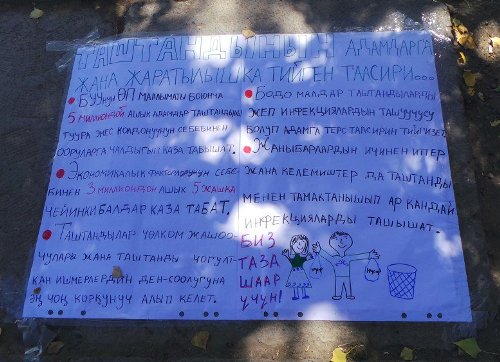 ТАШТАНДЫНЫН АДАМДАРГА
ЖАНА ЖАРАТЫЛЫШКА ТИЙГЕН ТААСИРИ...
БУУнун ӨП МААЛЫМАТЫ БОЮНЧА
5 МИЛЛИОНДОЙ АШЫК АДАМДАР ТАШТАНДЫНЫ
ТУУРА ЭМЕС КОЛДОНУУНУН СЕБЕБИНЕН
ООРУЛАРГА ЧАЛДЫГЫП КАЗА ТАБЫШАТ.
ЭКОНОМИКАЛЫК ФАКТОРЛОРДУН СЕБЕ-
БИНЕН 3 МИЛЛИОНДОН АШЫК 5 ЖАШКА
ЧЕЙИНКИ БАЛДАР КАЗА ТАБАТ.
ТАШТАНДЫЛАР ЧӨЛКӨМ ЖАШОО-
ЧУЛАРЫ ЖАНА ТАШТАНДЫ ЧОГУЛТ-
КАН ИШМЕРЛЕРДИН ДЕН-СООЛУГУНА
ЭҢ ЧОҢ КОРКУНУЧ АЛЫП КЕЛЕТ.
БОДО МАЛДАР ТАШТАНДЫЛАРДЫ
ЖЕП ИНФЕКЦИЯЛАРДЫН ТАШУУЧУСУ
БОЛУП АДАМГА ТЕРС ТАСИРИН ТИЙГИЗЕТ.
ЖАНЫБАРЛАРДЫН ИЧИНЕН ИТЕР
ЖАНА КЕЛЕМИШТЕР ДА ТАШТАНДЫ
МЕНЕН ТАМАКТАНЫШЫП АР КАНДАЙ
ИНФЕКЦИЯЛАРДЫ ТАШЫШАТ.
БИЗ
ТАЗА
ШААР
ҮЧҮН!